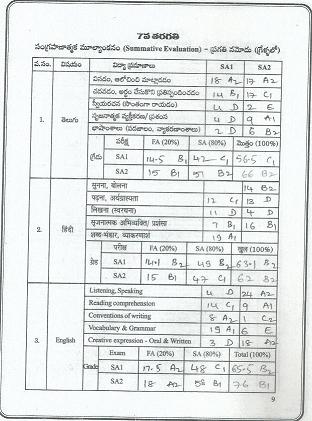 7వ తరగతి
సంగ్రహణాత్మక మూల్యాంకనం (Summative Evaluation) – ప్రగతి నమోదు (గ్రేడ్లలో)
వ.సం. విషయం విద్యా ప్రమాణాలు SA1 SA2
వినడం, ఆలోచించి మాట్లాడడం 18 A2 17 A2
చదవడం, అర్థం చేసుకొని ప్రతిస్పందించడం 14 B1 17 C1
స్వీయరచన (సొంతంగా రాయడం) 4 D 2 E
1. తెలుగు సృజనాత్మక వ్యక్తీకరణ/ ప్రశంస 4 D 9 A1
భాషాంశాలు (పదజాలం, వ్యాకరణాంశాలు) 2 D 6 B2
గ్రేడు పరీక్ష FA (20%) SA (80%) మొత్తం (100%)
SA1 14.5 B1 42 C1 56.5 C1
SA2 15 B1 51 B2 66 B2
सुनना, बोलना 14 B2
पढ़ना, अर्थग्राह्यता 12 C1 13 D
लिखना (स्वरचना) 11 D 4 D
2. हिंदी सृजनात्मक अभिव्यक्ति/ प्रशंसा 7 B1 16 B1
शब्द-भंडार, व्याकरणांश 19 A1
ग्रेड परीक्षा FA (20%) SA (80%) कुल (100%)
SA1 14.1 B2 49 B2 63.1 B2
SA2 15 B1 47 C1 62 B2
Listening, Speaking 4 D 24 A2
Reading comprehension 14 C1 9 A1
Conventions of writing 8 A2 1 C2
3. English Vocabulary & Grammar 19 A1 6 E
Creative expression - Oral & Written 3 D 18 A2
Grade Exam FA (20%) SA (80%) Total (100%)
SA1 17.5 A2 48 C1 65.5 B2
SA2 18 A2 58 B1 76 B1
9